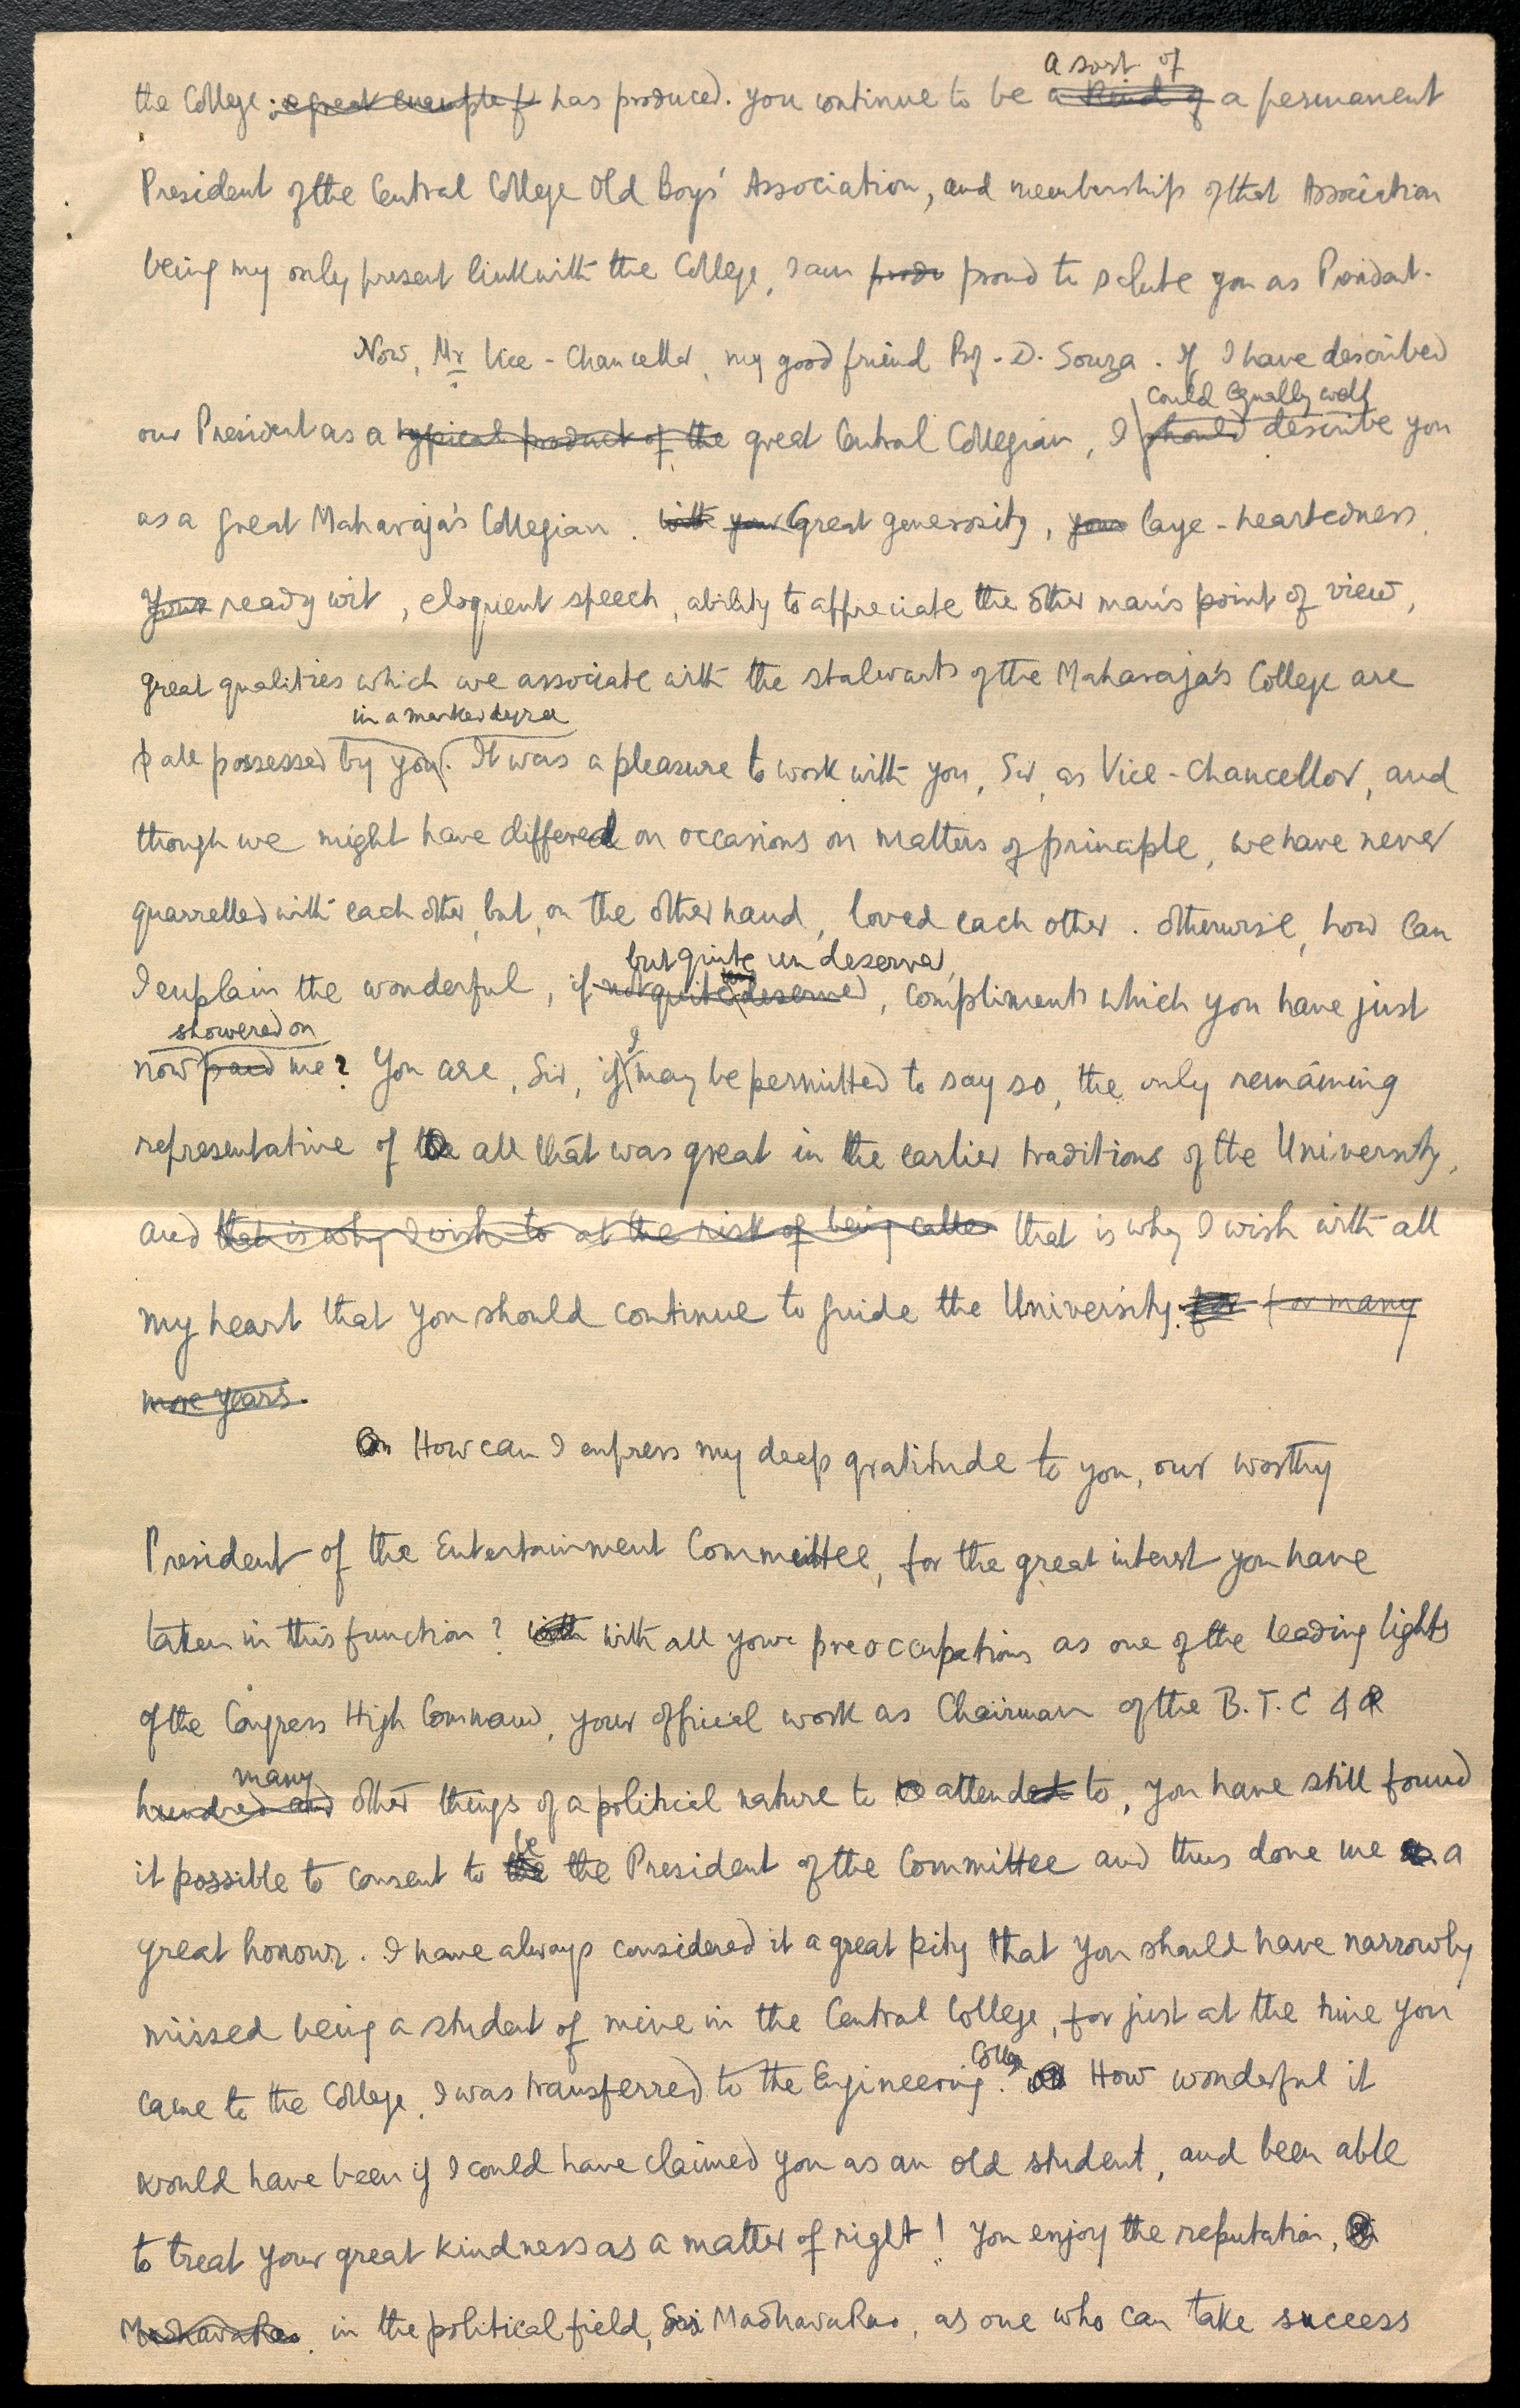 a sort of
the College ; a great example of has produced. You continue to be a kind of a permanent
President of the Central College Old Boys' Association, and membership of that Association
being my only present link with the College, I am prode proud to salute you as President.
Now, Mr Vice-Chancellor, my good friend Prof. D. Souza. If I have described
could equally well
our President as a typical product of the great Central Collegian, I should describe you
as a great Maharaja's Collegian. with your Great generosity, your large-heartedness,
your ready wit, eloquent speech, ability to appreciate the other man's point of view,
great qualities which we associate with the stalwarts of the Maharaja's College are
in a marked degree
all possessed by you. It was a pleasure to work with you, Sir, as Vice-Chancellor, and
though we might have differed on occasions on matters of principle, we have never
quarrelled with each other, but, on the other hand, loved each other. Otherwise, how can
but quite undeserved,
I explain the wonderful, if not quite undeserved, compliments which you have just
showered on I
now paid me? You are, Sir, if may be permitted to say so, the only remaining
representative of the all that was great in the earlier traditions of the University,
and that is why I wish to at the risk of being called that is why I wish with all
my heart that you should continue to guide the University. for for many
more years.
On How can I express my deep gratitude to you, our worthy
President of the Entertainment Committee, for the great interest you have
taken in this function? with with all your preoccupations as one of the leading lights
of the Congress High Command, your official work as Chairman of the B.T.C &
many
hundred and other things of a political nature to be attended to, you have still found
be
it possible to consent to the the President of the Committee and thus done me a
great honour. I have always considered it a great pity that you should have narrowly
missed being a student of mine in the Central College, for just at the time you
College
came to the College, I was transferred to the Engineering. How wonderful it
would have been if I could have claimed you as an old student, and been able
to treat your great kindness as a matter of right! You enjoy the reputation,
Madhava Rao, in the political field, Sri Madhava Rao, as one who can take success